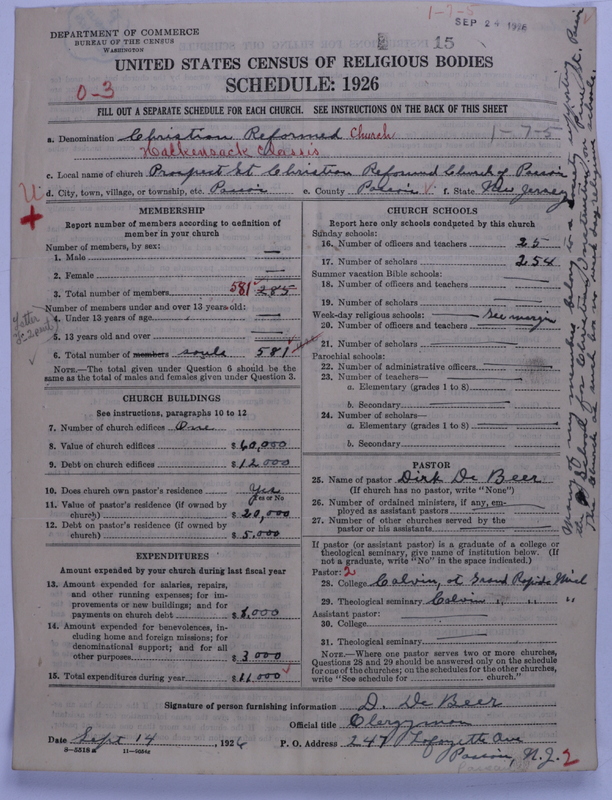 1-7-5
SEP 24 1926
15
DEPARTMENT OF COMMERCE
BUREAU OF THE CENSUS
WASHINGTON
UNITED STATES CENSUS OF RELIGIOUS BODIES
SCHEDULE: 1926
0-3
FILL OUT A SEPARATE SCHEDULE FOR EACH CHURCH. SEE INSTRUCTIONS ON THE BACK OF THIS SHEET
a. Denomination Christian Reformed Church 1-7-5
Hackensack Classis
c. Local name of church Prospect St Christian Reformed Church of Passaic
d. City, town, village, or township, etc. Passaic e. County Passaic f. State New Jersey
MEMBERSHIP
Report number of members according to definition of
member in your church
Number of members, by sex:
1. Male —
2. Female —
3. Total number of members 581 285
Number of members under and over 13 years old:
4. Under 13 years of age —
5. 13 years old and over —
6. Total number of members souls 581
NOTE.—The total given under Question 6 should be the
same as the total of males and females given under Question 3.
Letter
CHURCH BUILDINGS
See instructions, paragraphs 10 to 12
7. Number of church edifices One
8. Value of church edifices $ 60,000
9. Debt on church edifices $ 12000
10. Does church own pastor's residence Yes
Yes or No
11. Value of pastor's residence (if owned by
church) $ 20,000
12. Debt on pastor's residence (if owned by
church) $ 5,000
EXPENDITURES
Amount expended by your church during last fiscal year
13. Amount expended for salaries, repairs,
and other running expenses; for im-
provements or new buildings; and for
payments on church debt $ 8,000
14. Amount expended for benevolences, in-
cluding home and foreign missions; for
denominational support; and for all
other purposes $ 3000
15. Total expenditures during year $ 11,000
CHURCH SCHOOLS
Report here only schools conducted by this church
Sunday schools:
16. Number of officers and teachers 25
17. Number of scholars 254
Summer vacation Bible schools:
18. Number of officers and teachers
19. Number of scholars
Week-day religious schools: See margin
20. Number of officers and teachers
21. Number of scholars
Parochial schools:
22. Number of administrative officers
23. Number of teachers—
a. Elementary (grades 1 to 8)
b. Secondary
24. Number of scholars—
a. Elementary (grades 1 to 8)
b. Secondary
PASTOR
25. Name of pastor Dirk De Beer
(If church has no pastor, write "None")
26. Number of ordained ministers, if any, em-
ployed as assistant pastors
27. Number of other churches served by the
pastor or his assistants
If pastor (or assistant pastor) is a graduate of a college or
theological seminary, give name of institution below. (If
not a graduate, write "No" in the space indicated.)
Pastor: 2
28. College Calvin, at Grand Rapids Mich
29. Theological seminary Calvin " " "
Assistant pastor:
30. College
31. Theological seminary
NOTE.—Where one pastor serves two or more churches,
Questions 28 and 29 should be answered only on the schedule
for one of the churches; on the schedules for the other churches,
write "See schedule for church."
Many of my members belong to a Society supporting
the School for Christian Instruction on
The Church as such has no week day religious schools.
Signature of person furnishing information D. De Beer
Official title Clergyman
Date Sept 14, 1926 P. O. Address 247 Lafayette Ave
Passaic, N.J. 2
8-5518a 11-9034